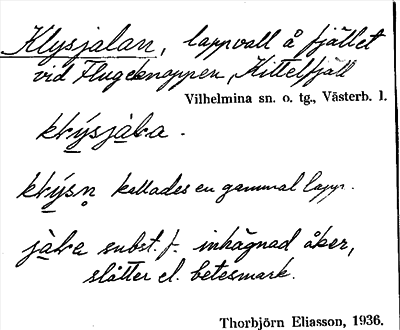 Klysjalan, lappvall å fjället
vid Flugeknappen, Kittelfjäll
Vilhelmina sn. o. tg., Västerb. l.
klýsjàla.
klýsn kallades en gammal lapp.
jàla subst. f. inhägnad åker,
slåtter el. betesmark.
Thorbjörn Eliasson, 1936.